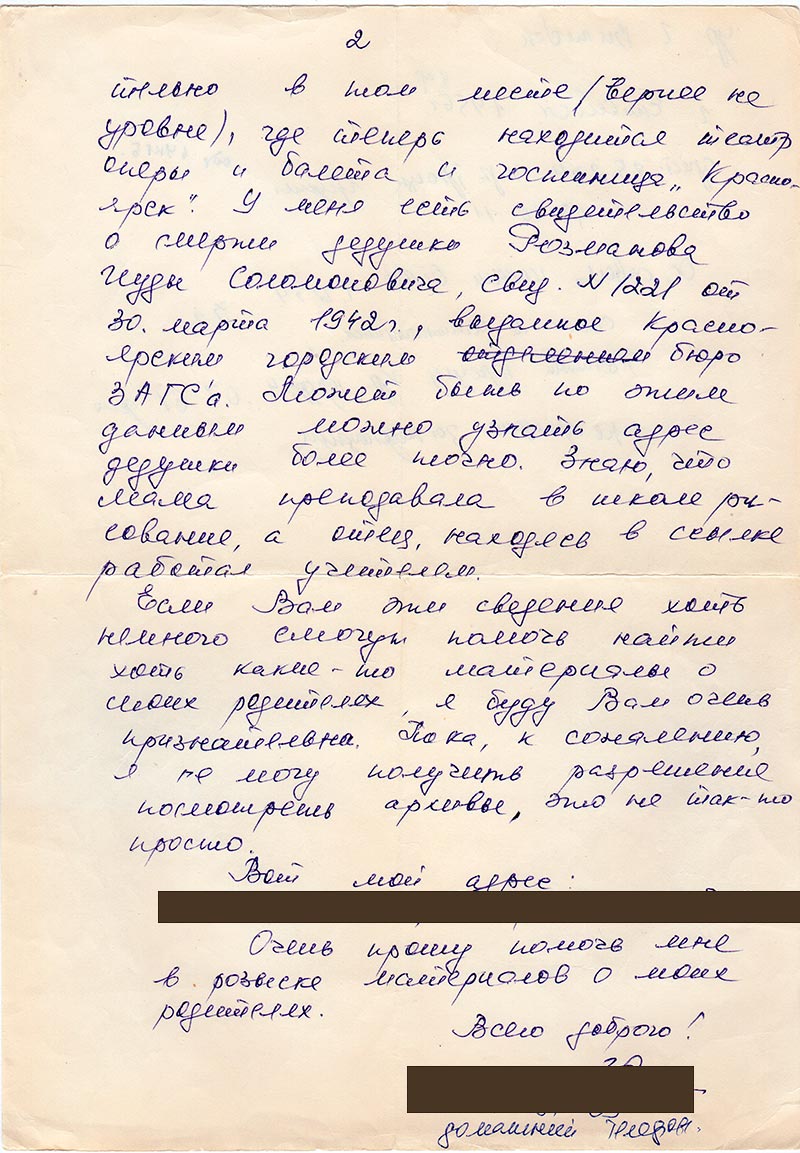 2
тельно в том месте (вернее на
уровне), где теперь находится театр
оперы и балета и гостиница „Красно-
ярск". У меня есть свидетельство
о смерти дедушки Розманова
Иуды Соломоновича, свид. N 1221 от
30. марта 1942 г., выданное Красно-
ярским городским отделением бюро
ЗАГС'а. Может быть по этим
данным можно узнать адрес
дедушки более точно. Знаю, что
мама преподавала в школе ри-
сование, а отец, находясь в ссылке
работал учителем.
Если Вам эти сведения хоть
немного смогут помочь найти
хоть какие-то материалы о
моих родителях, я буду Вам очень
признательна. Пока, к сожалению,
я не могу получить разрешение
посмотреть архивы, это не так-то
просто.
Вот мой адрес:
Очень прошу помочь мне
в розыске материалов о моих
родителях.
Всего доброго!
домашний телефон.